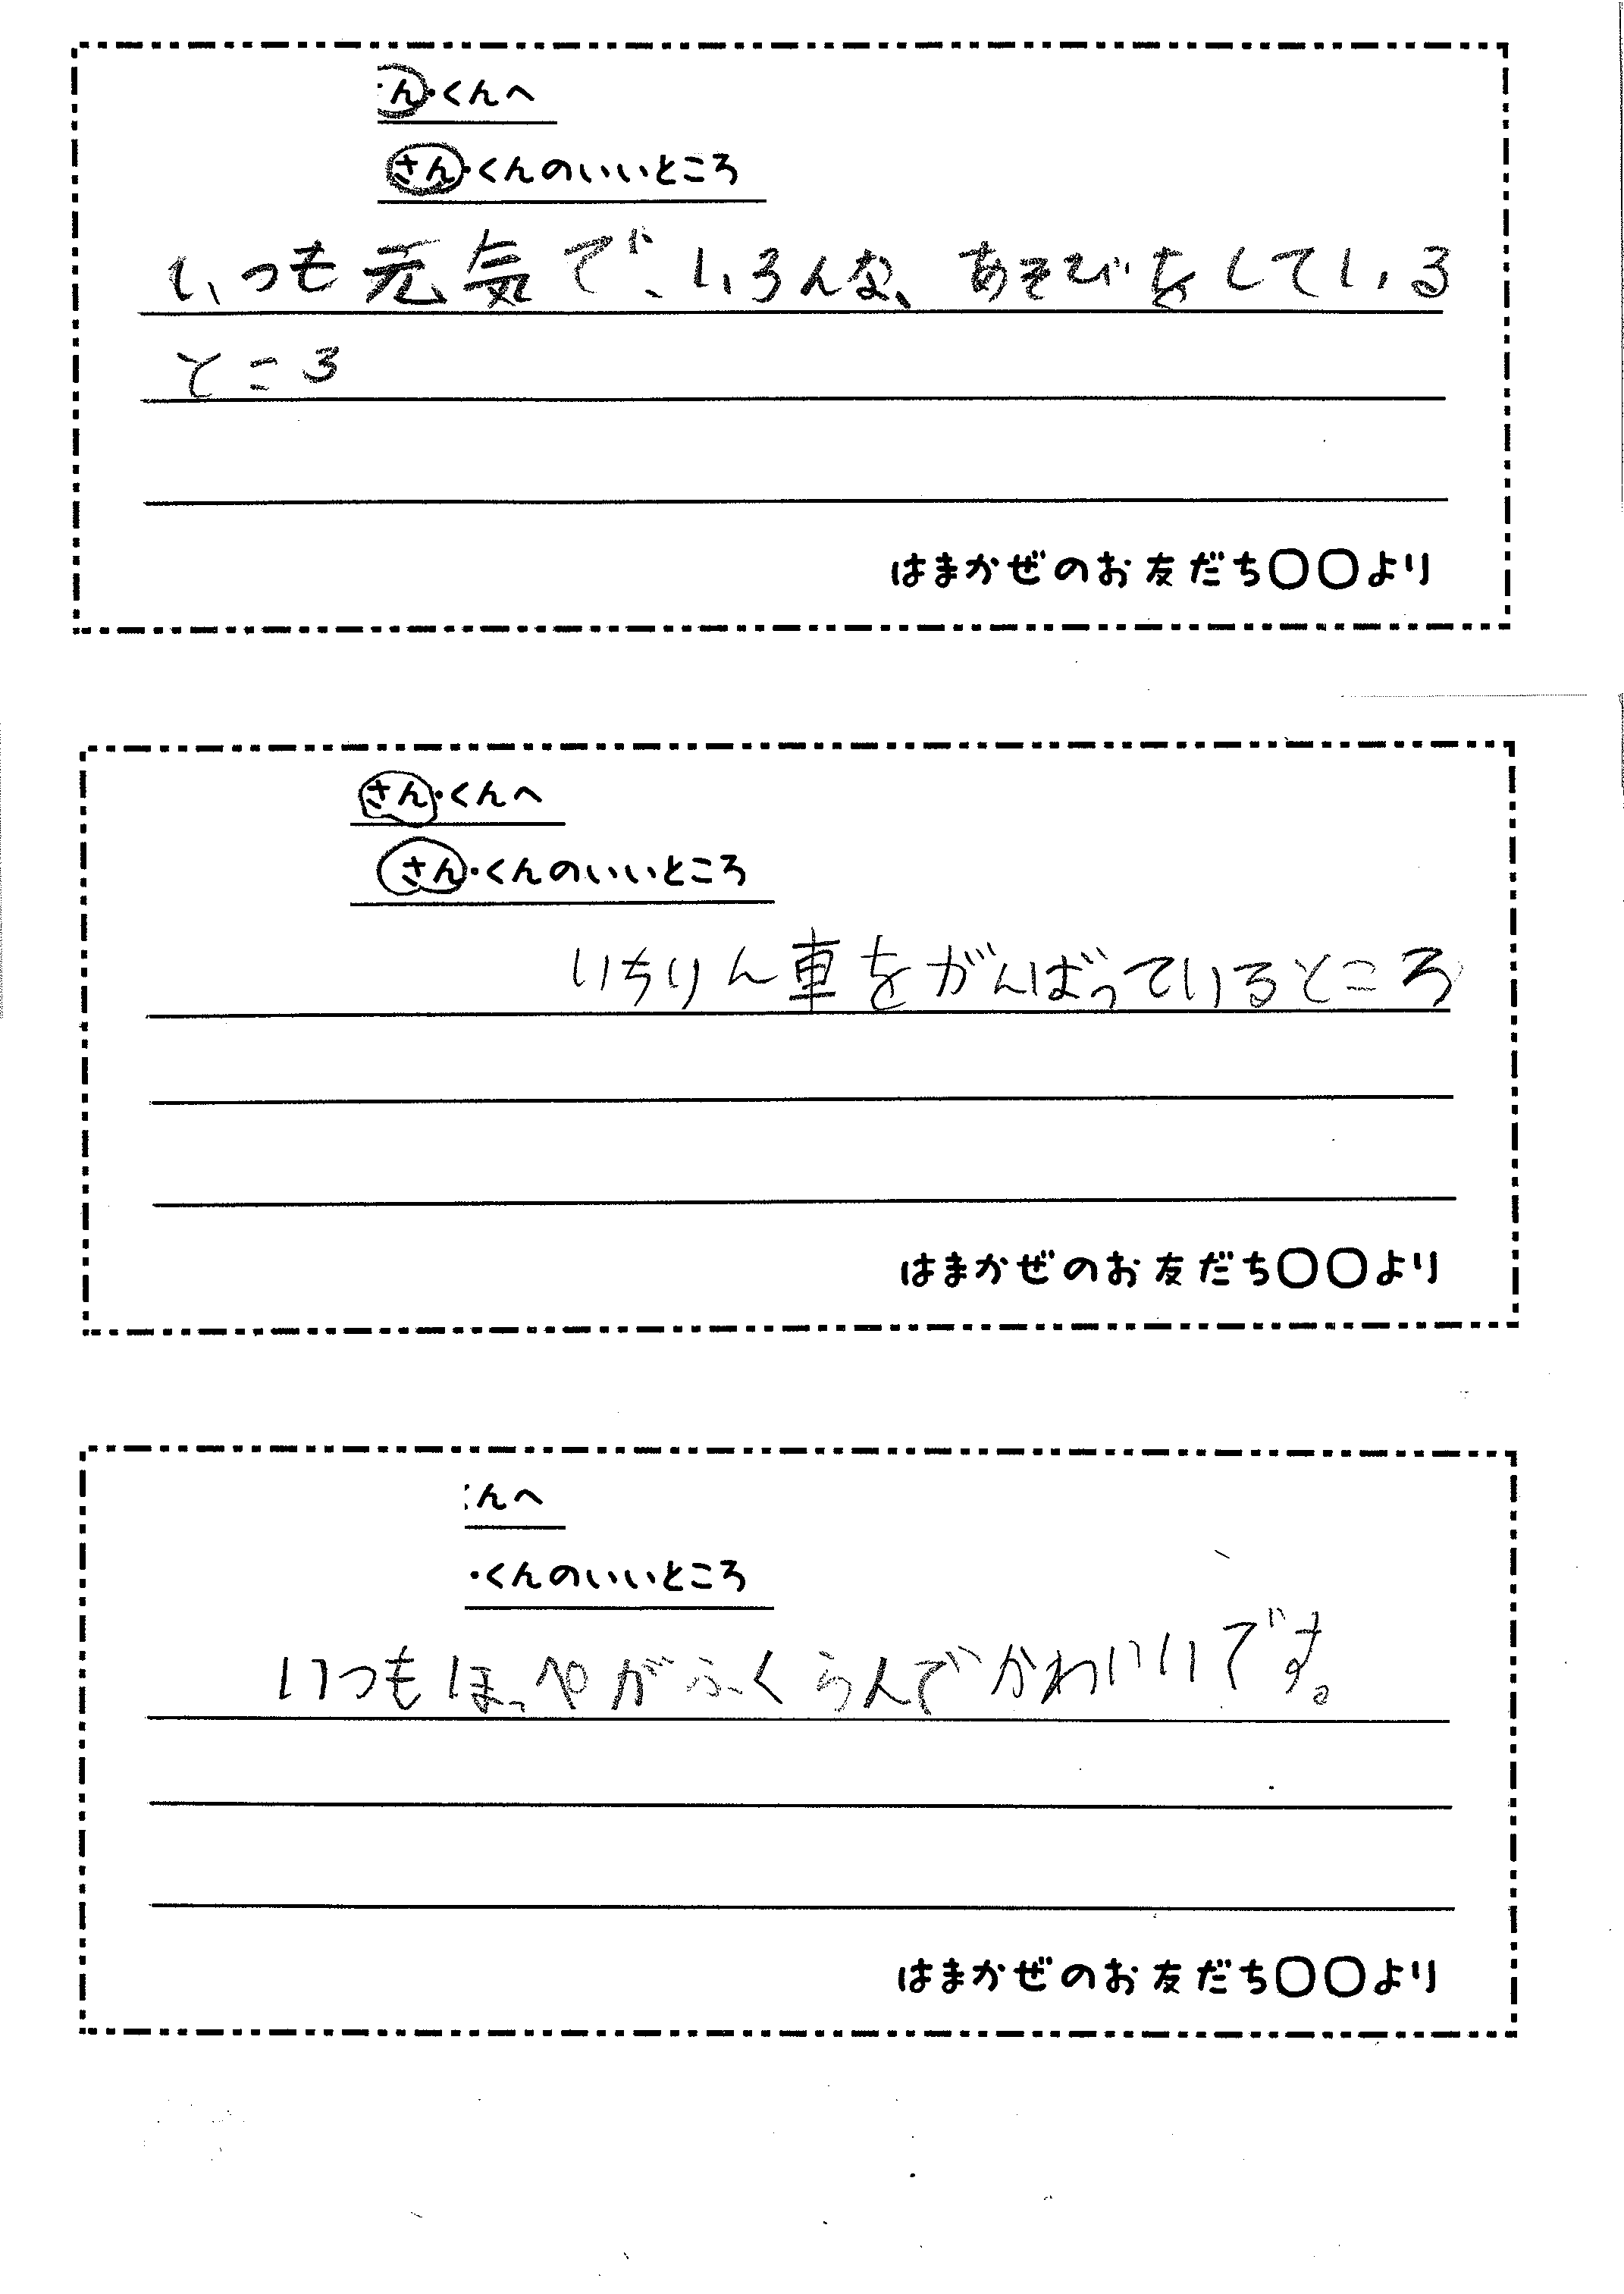 ん・くんへ
さん・くんのいいところ
いつも元気で、いろんな、あそびをしている
ところ
はまかぜのお友だち〇〇より
さん・くんへ
さん・くんのいいところ
いちりん車をがんばっているところ
はまかぜのお友だち〇〇より
んへ
・くんのいいところ
いつもほっぺがふくらんでかわいいです。
はまかぜのお友だち〇〇より